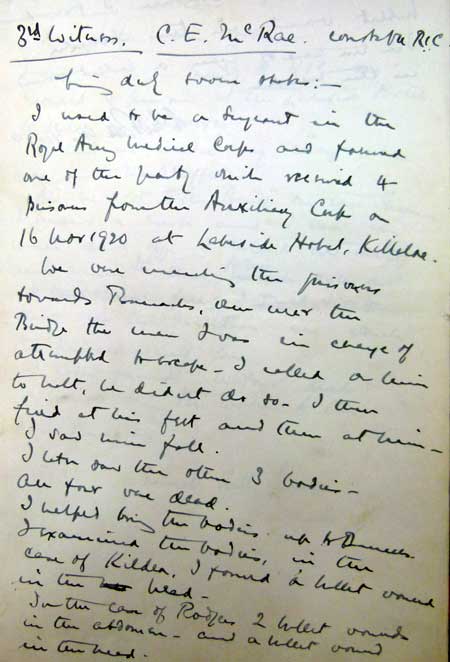 3rd Witness. C. E. McRae. Constable R.I.C.
being duly sworn states:—
I used to be a Sergeant in the
Royal Army Medical Corps and formed
one of the party which received 4
prisoners from the Auxiliary Corps on
16 Nov 1920 at Lakeside Hotel, Killaloe.
We were the prisoners
towards Barracks, when near the
Bridge the man I was in charge of
attempted to escape - I called on him
to halt, he didn't do so - I then
fired at his feet and then at him -
I saw him fall.
I then saw the other 3 bodies -
All four were dead.
I helped bring the bodies up to Barracks.
I examined the bodies, in the
case of Kildea, I found a bullet wound
in the head -
In the case of Rodgers 2 bullet wounds
in the abdomen - and a bullet wound
in the head.